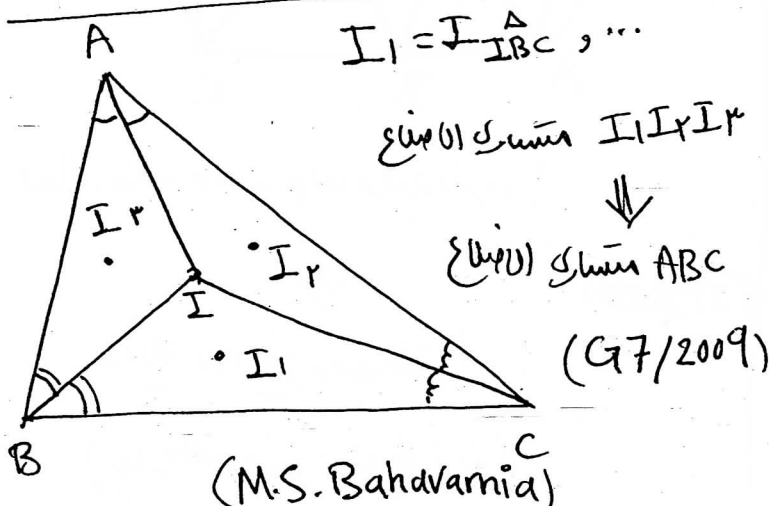 A
I₁ = I_{IBC}^Δ , ...
I₁I₂I₃ متساوی الاضلاع
⇓
ABC متساوی الاضلاع
(G7/2009)
I۳
I۲
I
I₁
B
C
(M.S. Bahavarnia)